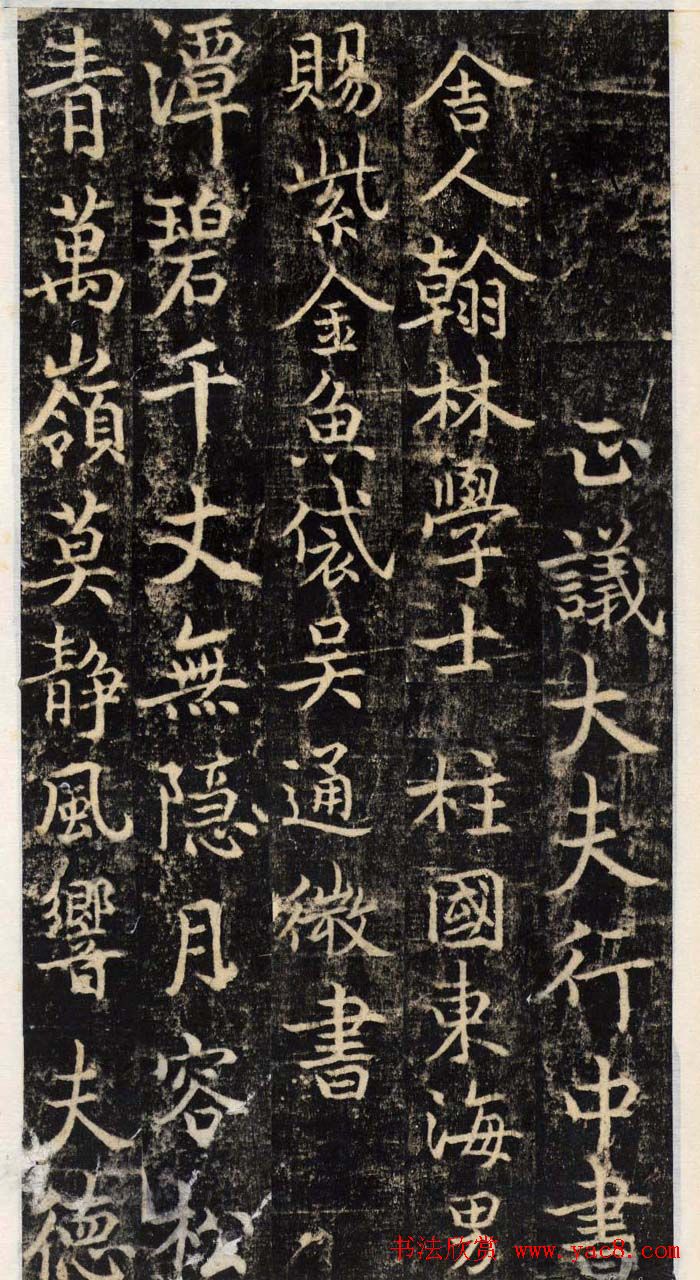 正議大夫行中書
舍人翰林學士 柱國東海男
賜紫金魚袋吴通微書
潭碧千丈無隐月容松
青萬嶺莫静風響夫德
书法欣赏 www.yac8.com